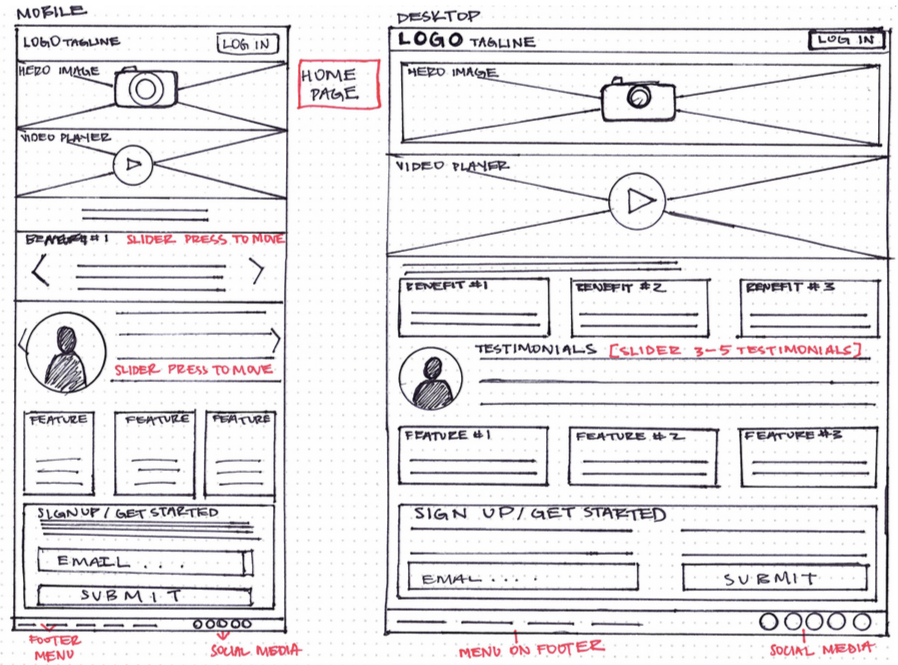 MOBILE
LOGO TAGLINE
LOG IN
HERO IMAGE
VIDEO PLAYER
#1 SLIDER PRESS TO MOVE
SLIDER PRESS TO MOVE
FEATURE FEATURE FEATURE
SIGN UP / GET STARTED
EMAIL . . . .
SUBMIT
FOOTER
MENU
SOCIAL MEDIA
HOME
PAGE
DESKTOP
LOGO TAGLINE
LOG IN
HERO IMAGE
VIDEO PLAYER
BENEFIT #1 BENEFIT #2 BENEFIT #3
TESTIMONIALS [SLIDER 3-5 TESTIMONIALS]
FEATURE #1 FEATURE #2 FEATURE #3
SIGN UP/GET STARTED
EMAL . . . . .
SUBMIT
MENU ON FOOTER
SOCIAL MEDIA